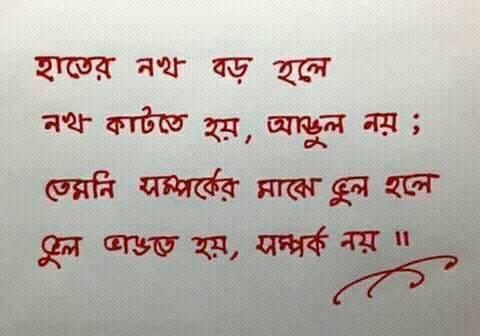 হাতের নখ বড় হলে
নখ কাটতে হয়, আঙুল নয় ;
তেমনি সম্পর্কের মাঝে ভুল হলে
ভুল ভাঙতে হয়, সম্পর্ক নয় ॥